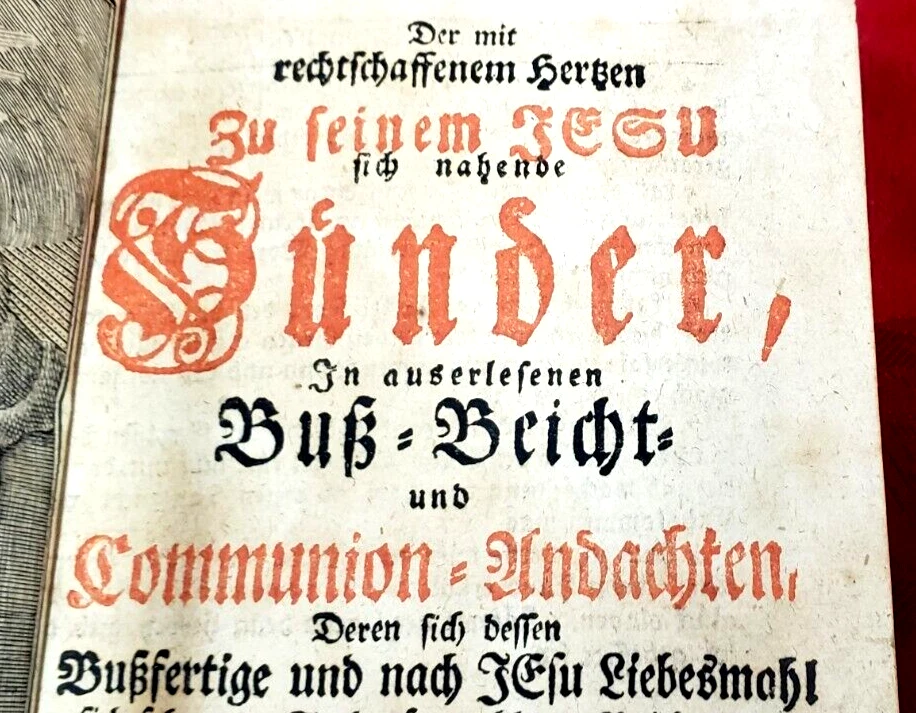 Der mit
rechtschaffenem Hertzen
Zu seinem JESU
sich nahende
Sünder,
In auserlesenen
Buß-Beicht-
und
Communion-Andachten,
Deren sich dessen
Bußfertige und nach JEsu Liebesmahl